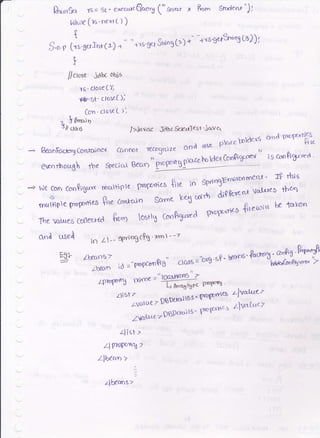 ResultSet rs= St. executeQuery ("select * from Student");
while (rs.next( ))
{
S.o.p (rs.getInt(1)+" "+rs.getString(2)+" "+rs.getString(3));
}
//close jdbc objs
rs. close();
st. close();
Con. close( );
} // main
} // class
>javac JdbcSelectTest.java
→ BeanFactory Container Cannot recognize and use place holders and properties file
eventhough the Special Bean "propertyplaceholderConfigurer" is Configured.
→ We can Configure multiple properties file in Spring Environment. If this
multiple properties file Contain Same key with different values then
The values collected from lastly Configured properties file will be taken
and used
in <!-- Springcfg.xml -->
Eg: <beans>
<bean id="propConfig" class="org.sf.beans.factory.config.Property
placeholderConfigurer">
<property name="locations">
↳ Array type property
<list>
<value>DBDetails.properties</value>
<value>DBDetails1.properties</value>
</list>
</property>
</bean>
</beans>